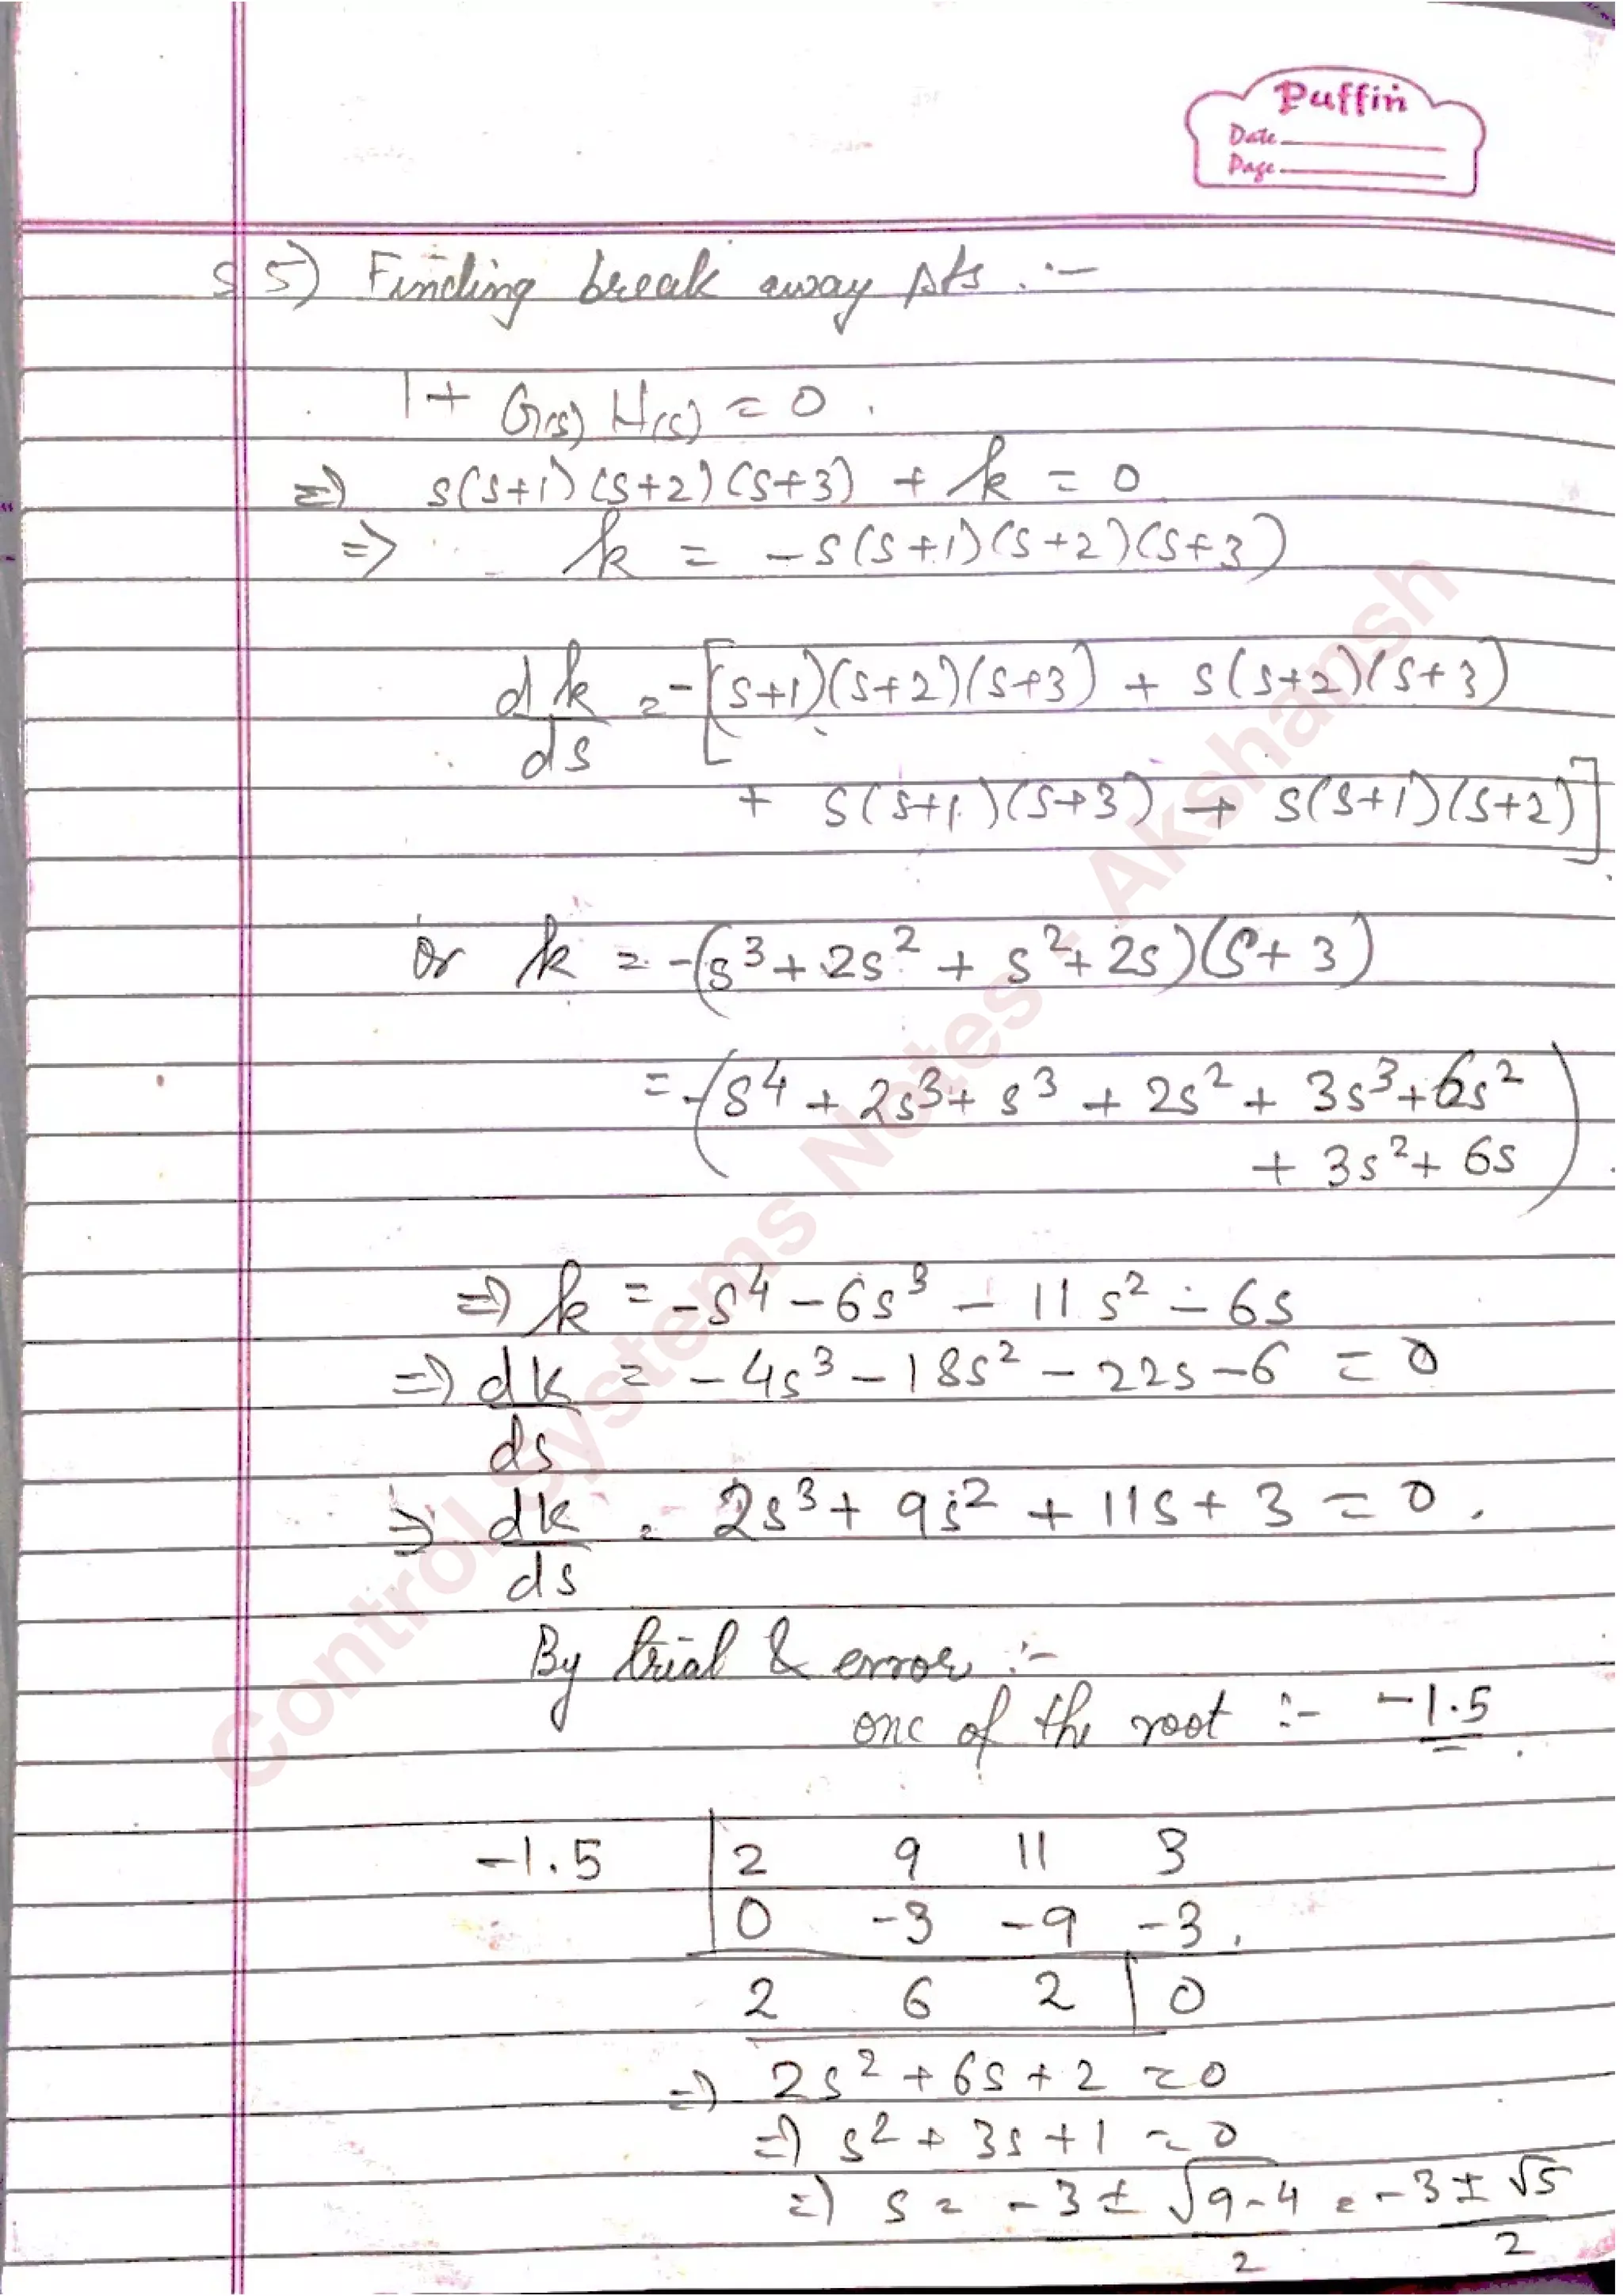 Puffin
Date
Page
5) Finding break away pts. :-
1 + G(s) H(s) = 0.
=> s(s+1)(s+2)(s+3) + k = 0
=> k = -s(s+1)(s+2)(s+3)
dk/ds = -[(s+1)(s+2)(s+3) + s(s+2)(s+3)
+ s(s+1)(s+3) + s(s+1)(s+2)]
or k = -(s³ + 2s² + s² + 2s)(s+3)
= -(s⁴ + 2s³ + s³ + 2s² + 3s³ + 6s²
+ 3s² + 6s)
=> k = -s⁴ - 6s³ - 11s² - 6s
=> dk/ds = -4s³ - 18s² - 22s - 6 = 0
=> dk/ds = 2s³ + 9s² + 11s + 3 = 0.
By trial & error :-
one of the root :- -1.5
-1.5 | 2 9 11 3
0 -3 -9 -3.
2 6 2 | 0
=> 2s² + 6s + 2 = 0
=> s² + 3s + 1 = 0
=> s = -3 ± √9-4 / 2 = -3 ± √5 / 2
Control Systems Notes - Akshansh